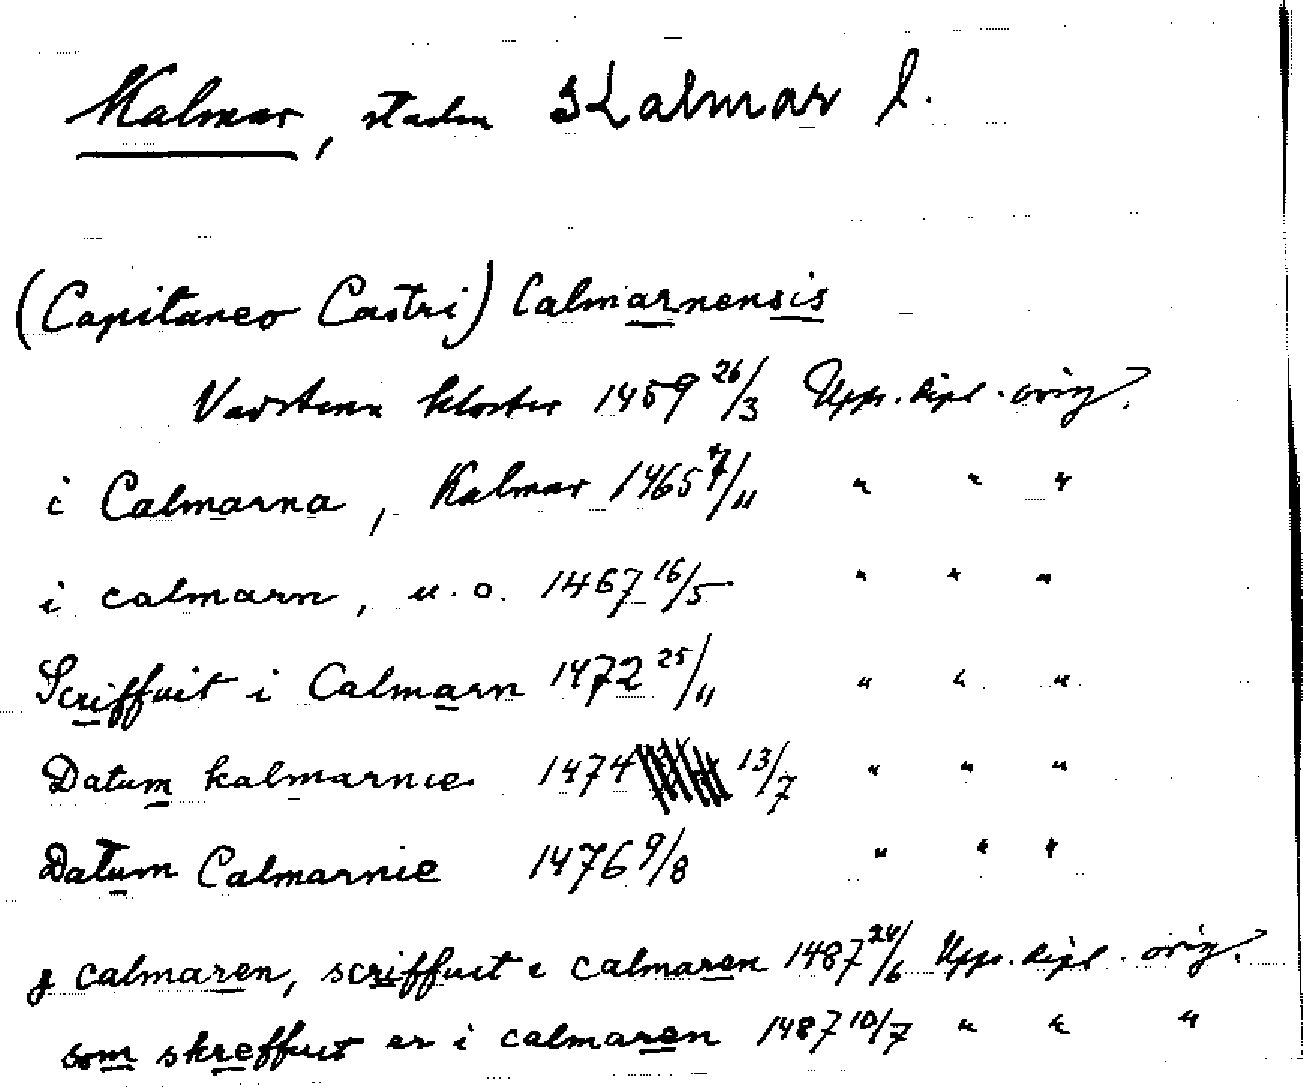 Kalmar, staden Kalmar l.
(Capitaneo Castri) Calmarnensis
Vadstena kloster 1459 26/3 Upps. dipl. orig.
i Calmarna, Kalmar 1465 7/11 " " "
i calmarn, u.o. 1467 16/5 " " "
Scriffuit i Calmarn 1472 25/11 " " "
Datum kalmarnie 1474 13/7 " " "
Datum Calmarnie 1476 9/8 " " "
j calmaren, scriffuit i calmaren 1487 24/6 Upps. dipl. orig.
som skreffuit er i calmaren 1487 10/7 " " "